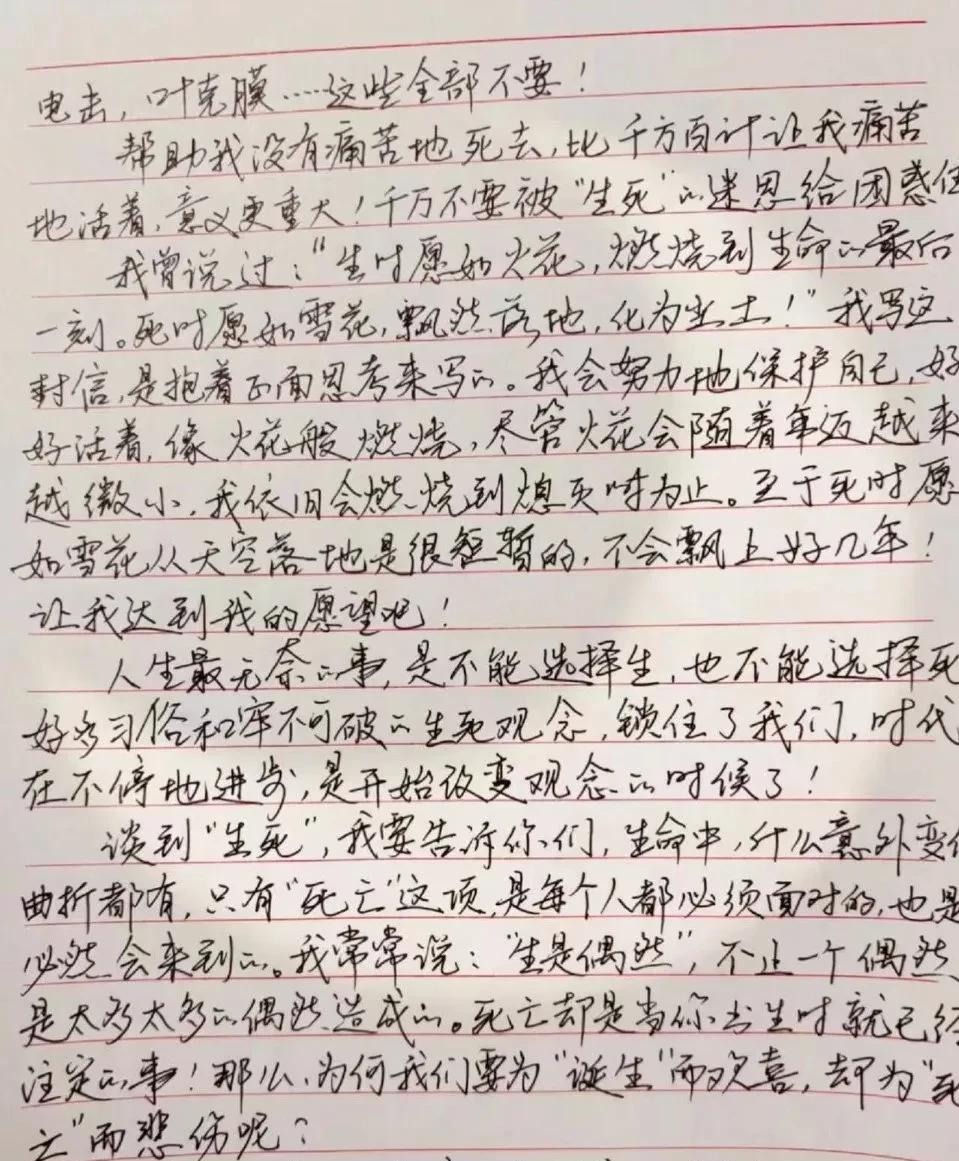 电击，叶克膜……这些全部不要！
帮助我没有痛苦地死去，比千方百计让我痛苦
地活着，意义更重大！千万不要被“生死”的迷思给困惑住
我曾说过：“生时愿如火花，燃烧到生命的最后
一刻。死时愿如雪花，飘然落地，化为尘土！”我写这
封信，是抱着正面思考来写的。我会努力地保护自己，好
好活着，像火花般燃烧，尽管火花会随着年迈越来
越微小，我依旧会燃烧到熄灭时为止。至于死时愿
如雪花从天空落地是很短暂的，不会飘上好几年！
让我达到我的愿望吧！
人生最无奈的事，是不能选择生，也不能选择死
好多习俗和牢不可破的生死观念，锁住了我们，时代
在不停地进步，是开始改变观念的时候了！
谈到“生死”，我要告诉你们，生命中，什么意外变化
曲折都有，只有“死亡”这项，是每个人都必须面对的，也是
必然会来到的。我常常说：“生是偶然”，不止一个偶然，
是太多太多的偶然造成的。死亡却是当你出生时就已经
注定的事！那么，为何我们要为“诞生”而欢喜，却为“死
亡”而悲伤呢？